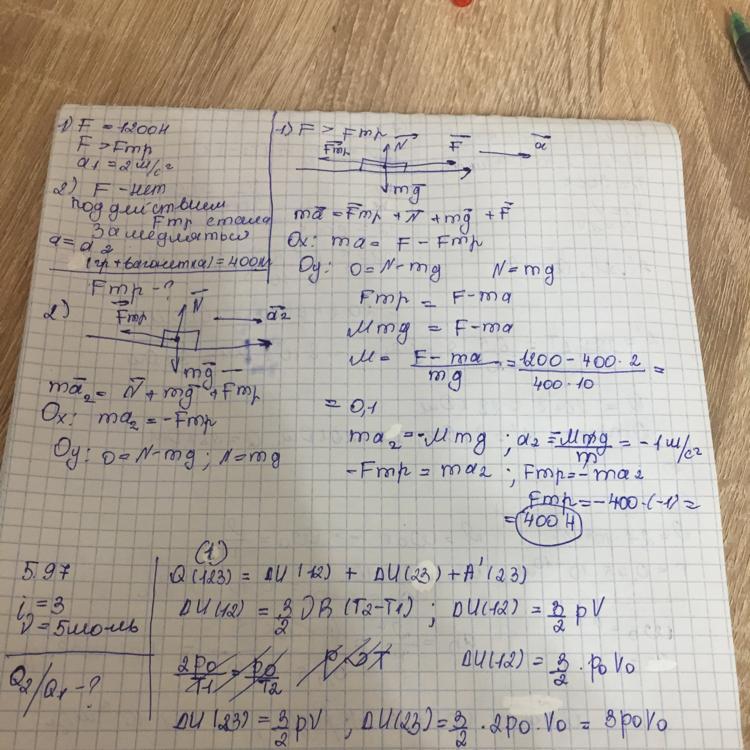 1) F = 1200 Н
F > Fтр
a1 = 2 м/с²
2) F - нет
под действием
Fтр стала
замедляться
a = a2
(гр + вагонетка) = 400
Fтр - ?
1) F > Fтр
Fтр N F a
mg
ma = Fтр + N + mg + F
Ox: ma = F - Fтр
Oy: 0 = N - mg N = mg
Fтр = F - ma
Mmg = F - ma
M = F - ma / mg = 1200 - 400 · 2 / 400 · 10 =
= 0,1
ma2 = -Mmg ; a2 = -Mmg / m = -1 м/с²
-Fтр = ma2 ; Fтр = -ma2
Fтр = -400 · (-1) =
= 400 Н
2)
Fтр N a2
mg
ma2 = N + mg + Fтр
Ox: ma2 = -Fтр
Oy: 0 = N - mg ; N = mg
5.97
i = 3
ν = 5 моль
Q2/Q1 - ?
(1)
Q(123) = ΔU(12) + ΔU(23) + A'(23)
ΔU(12) = 3/2 νR (T2 - T1) ; ΔU(12) = 3/2 pV
2p0/T1 = p0/T2 ΔU(12) = 3/2 · p0V0
ΔU(23) = 3/2 pV ; ΔU(23) = 3/2 · 2p0 · V0 = 3p0V0